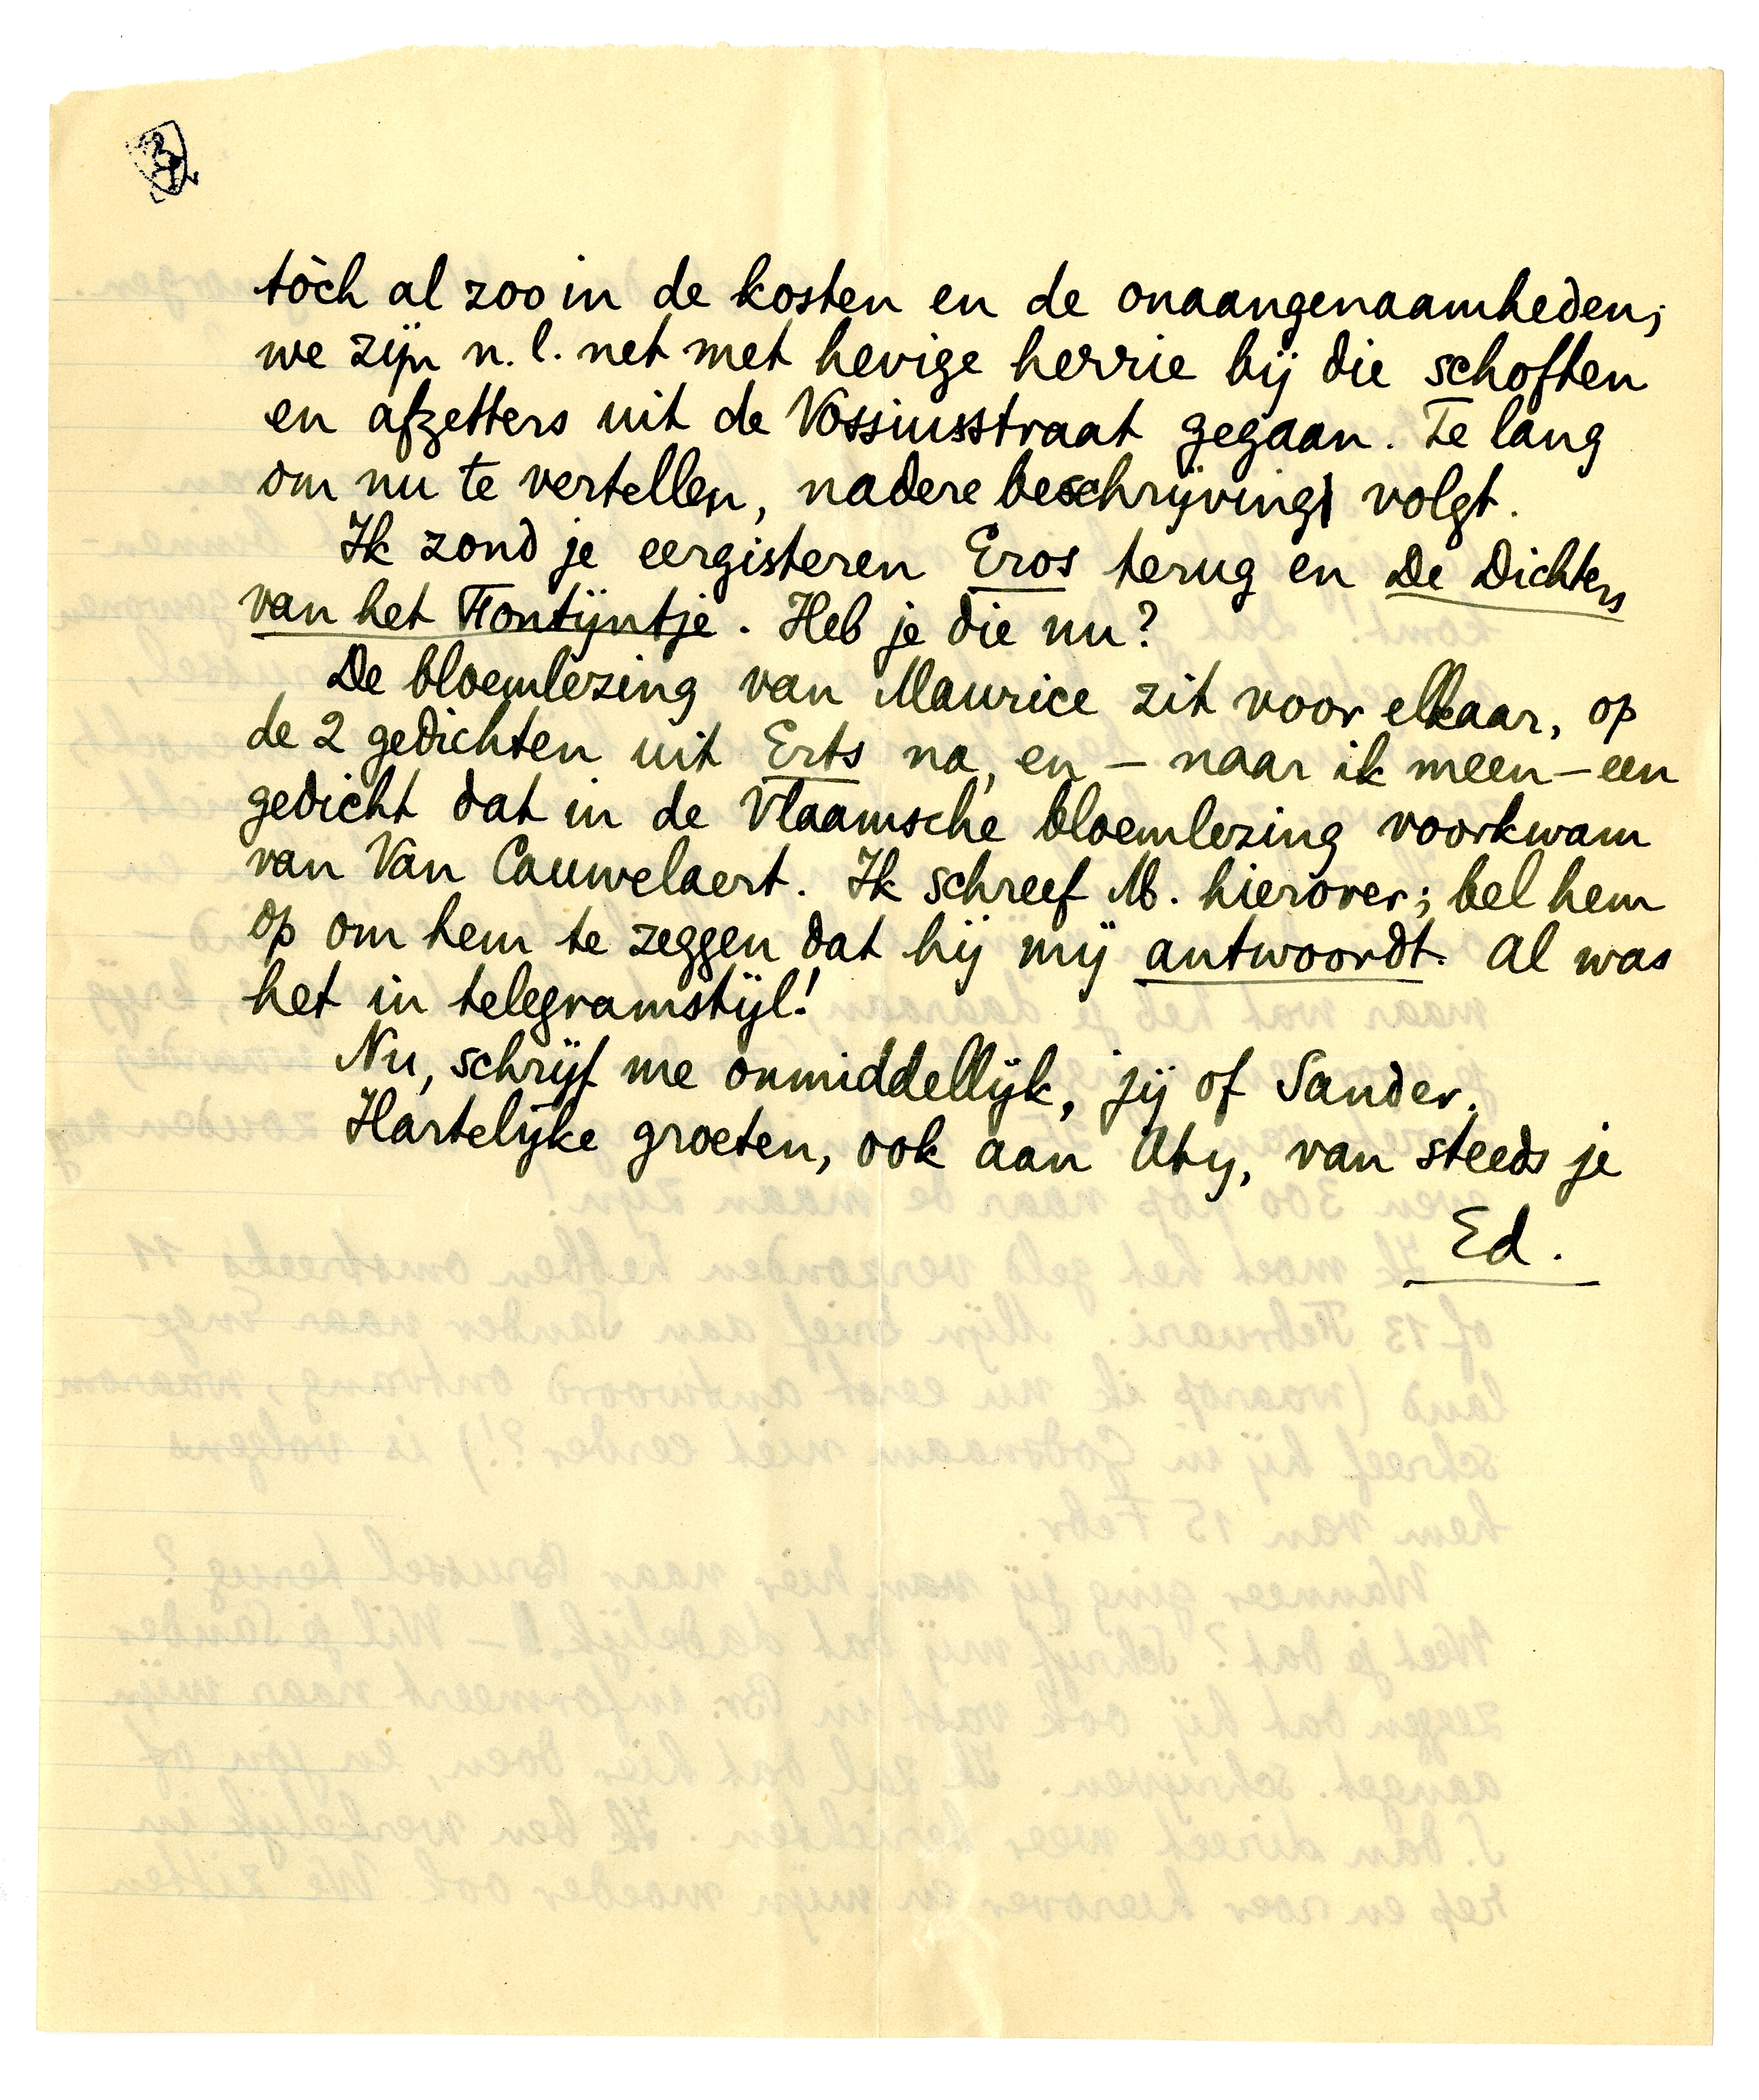 tòch al zoo in de kosten en de onaangenaamheden;
we zijn n.l. net met hevige herrie bij die schoften
en afzetters uit de Vossiusstraat gegaan. Te lang
om nu te vertellen, nadere beschrijving volgt.
Ik zond je eergisteren Eros terug en De Dichters
van het Fontijntje. Heb je die nu?
De bloemlezing van Maurice zit voor elkaar, op
de 2 gedichten uit Erts na, en – naar ik meen – een
gedicht dat in de Vlaamsche bloemlezing voorkwam
van Van Cauwelaert. Ik schreef M. hierover; bel hem
op om hem te zeggen dat hij mij antwoordt. Al was
het in telegramstijl!
Nu, schrijf me onmiddellijk, jij of Sander.
Hartelijke groeten, ook aan Aty, van steeds je
Ed.